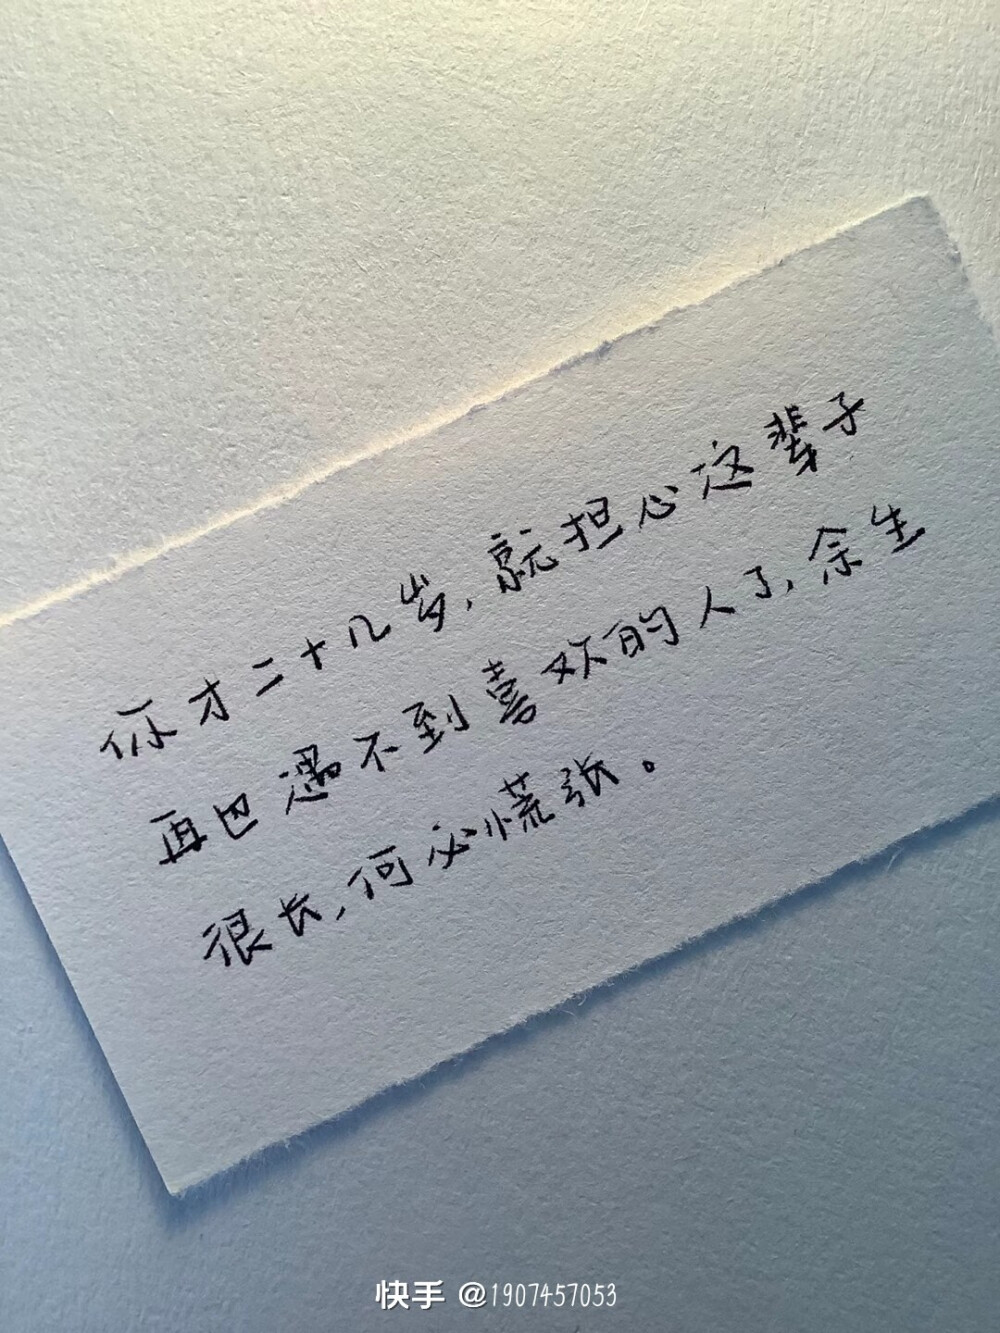 你才二十几岁，就担心这辈子
再也遇不到喜欢的人了，余生
很长，何必慌张。
快手 @1907457053